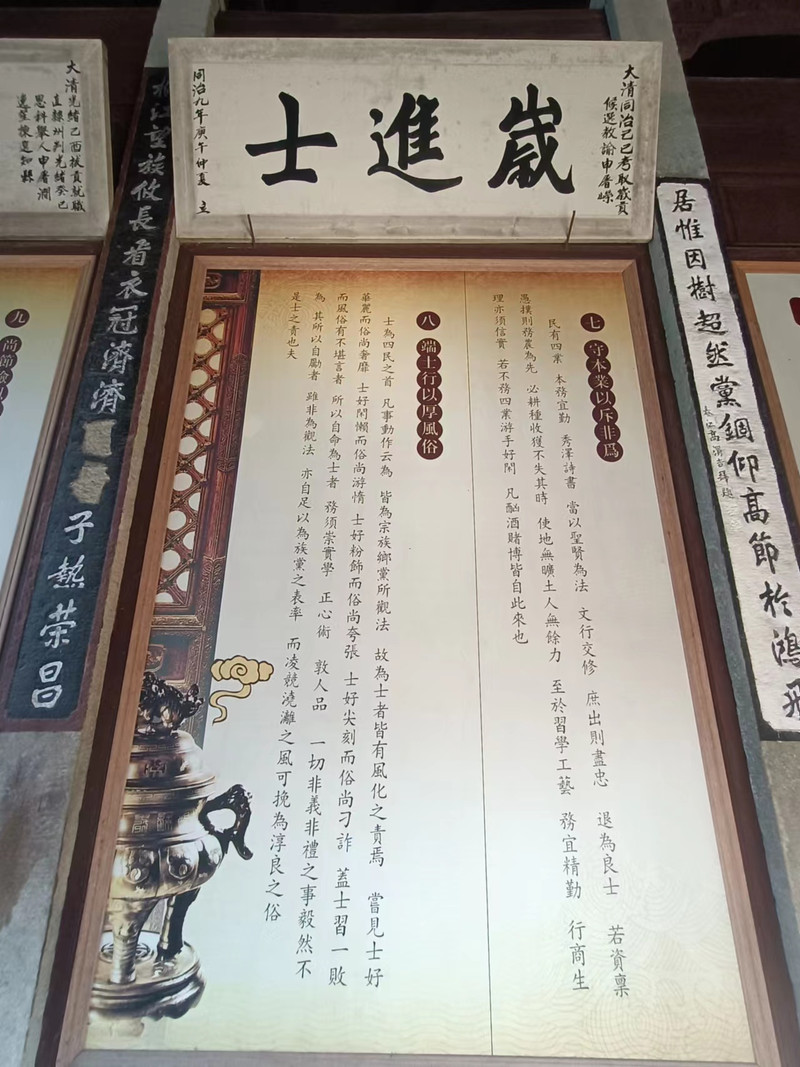 歲進士
大清同治己巳考取歲貢
候選教諭申屠嶸
同治九年庚午仲夏 立
大清光緒己酉拔貢就職
直隸州判光緒癸巳
恩科舉人申屠澗
居惟因樹超然黨錮仰高節於鴻飛
江望族攸長看衣冠濟濟
子熱荣昌
七 守本業以斥非爲
民有四業 本務宜勤 秀澤詩書 當以聖賢為法 文行交修 庶出則盡忠 退為良士 若資稟
愚撲則務農為先 必耕種收獲不失其時 使地無曠土人無餘力 至於習學工藝 務宜精勤 行商生
理亦須信實 若不務四業游手好閑 凡酗酒賭博皆自此來也
八 端士行以厚風俗
士為四民之首 凡事動作云為 皆為宗族鄉黨所觀法 故為士者皆有風化之責焉 嘗見士好
華麗而俗尚奢靡 士好閑懶而俗尚游惰 士好粉飾而俗尚夸張 士好尖刻而俗尚刁詐 蓋士習一敗
而風俗有不堪言者 所以自命為士者 務須崇實學 正心術 敦人品 一切非義非禮之事毅然不
為 其所以自勵者 雖非為觀法 亦自足以為族黨之表率 而凌競澆漓之風可挽為淳良之俗
是士之責也夫
九 尚節儉以